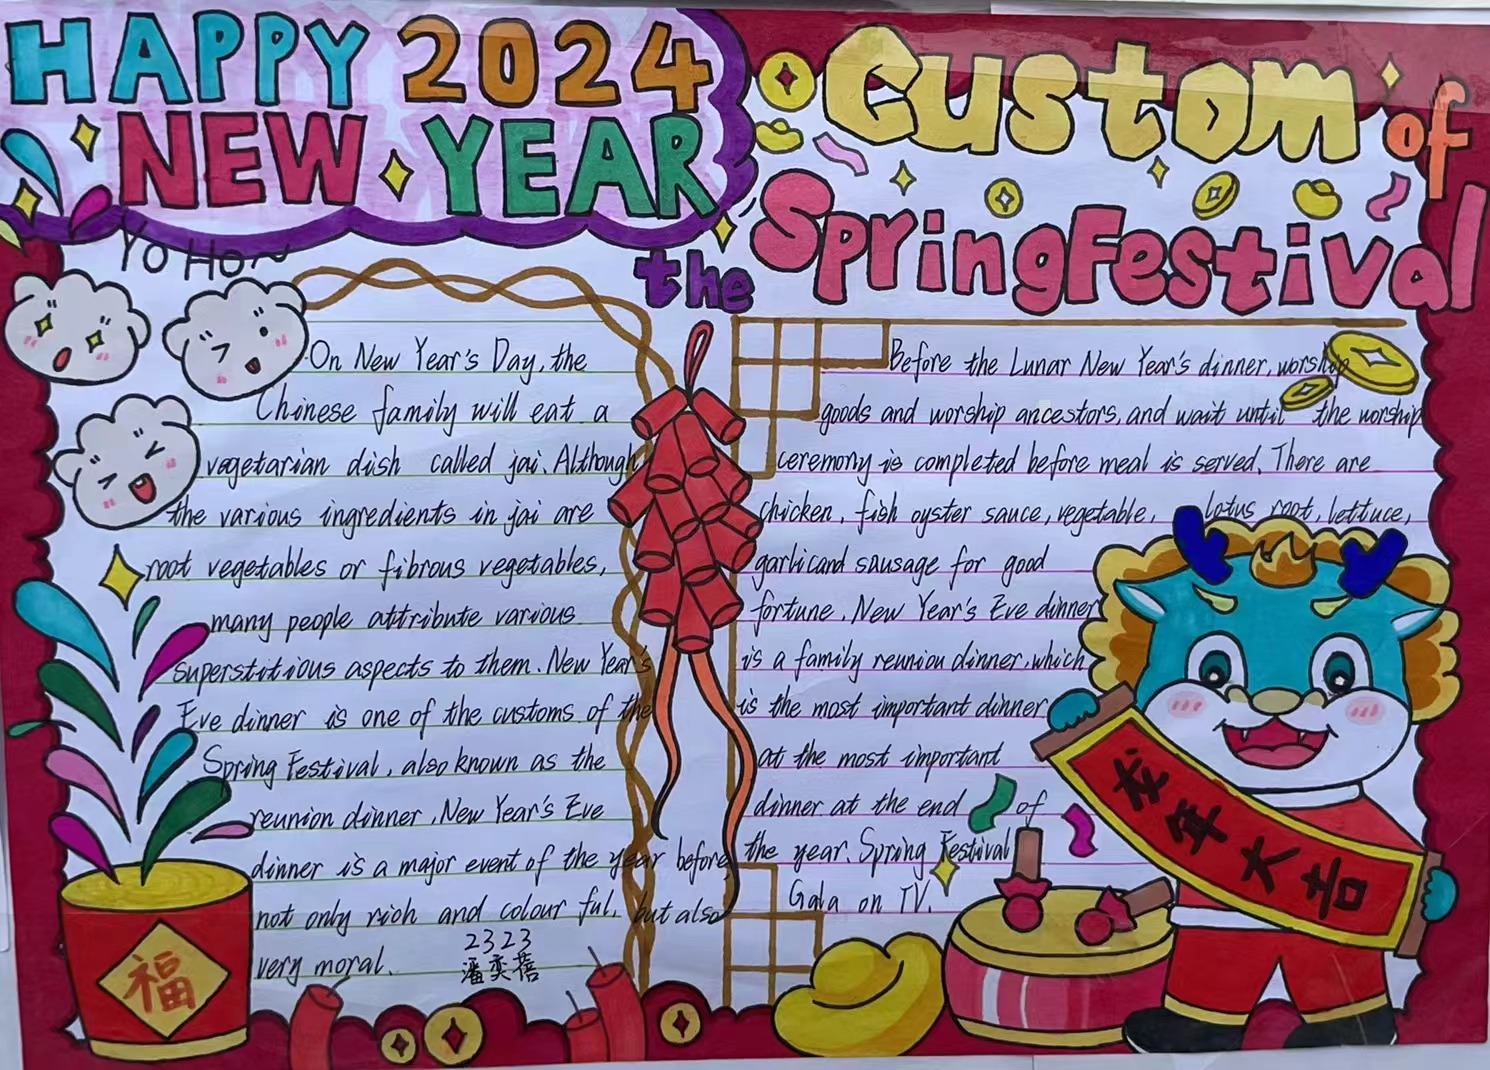 HAPPY 2024
NEW YEAR
Custom of
the Spring Festival
Yo Ho~
On New Year's Day, the
Chinese family will eat a
vegetarian dish called jai. Although
the various ingredients in jai are
root vegetables or fibrous vegetables,
many people attribute various
superstitious aspects to them. New Year's
Eve dinner is one of the customs of the
Spring Festival, also known as the
reunion dinner, New Year's Eve
dinner is a major event of the year before
not only rich and colour ful, but also
very moral.
2323
潘奕蓓
Before the Lunar New Year's dinner, worship
goods and worship ancestors, and wait until the worship
ceremony is completed before meal is served. There are
chicken, fish oyster sauce, vegetable, lotus root, lettuce,
garlicand sausage for good
fortune. New Year's Eve dinner
is a family reunion dinner, which
is the most important dinner
at the most important
dinner at the end of
the year. Spring Festival
Gala on TV.
龙年大吉
福